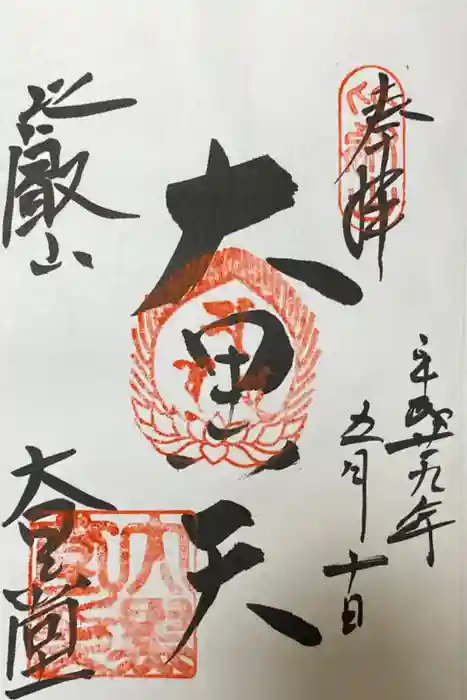 奉拝
平成廿九年
五月十日
大黒天
比叡山
大黒堂